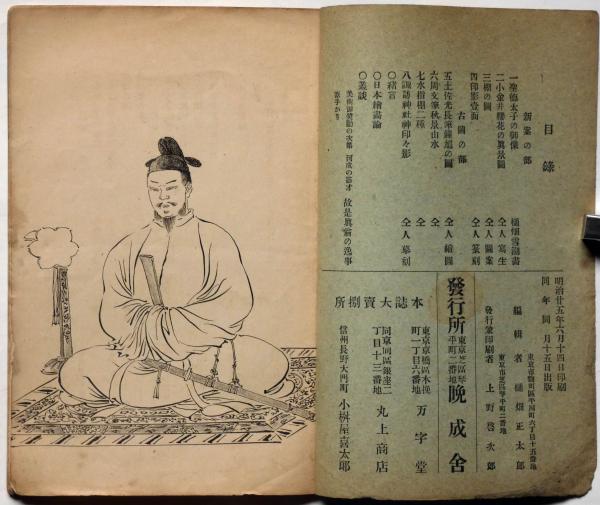 目錄
新案の部
一聖德太子の御像 樋畑雪湖書
二小金井櫻花の眞景圖 仝人寫生
三棚の圖 仝人圖案
四印影壹面 仝人篆刻
古圖の部
五土佐光長筆鐘馗の圖 仝人縮圖
六周文筆秋景山水 仝
七水指棚二種 仝
八諏訪神社神印々影 仝人摹刻
〇緒言
〇日本繪畵論
〇叢談
美術御奬勵の次第 河成の器才 故是眞翁の逸事
明治廿五年六月十四日印刷
同年同月十五日出版
東京市麴町區平河町六丁目十五番地
編輯者 樋畑正太郎
東京市芝區琴平町二番地
發行兼印刷者 上野啓次郎
發行所 東京芝區琴平町二番地 晩成舍
本誌大賣捌所
東京京橋區木挽町一丁目六番地 万字堂
同京同區銀座二丁目十三番地 丸上商店
信州長野大門町 小桝屋喜太郎